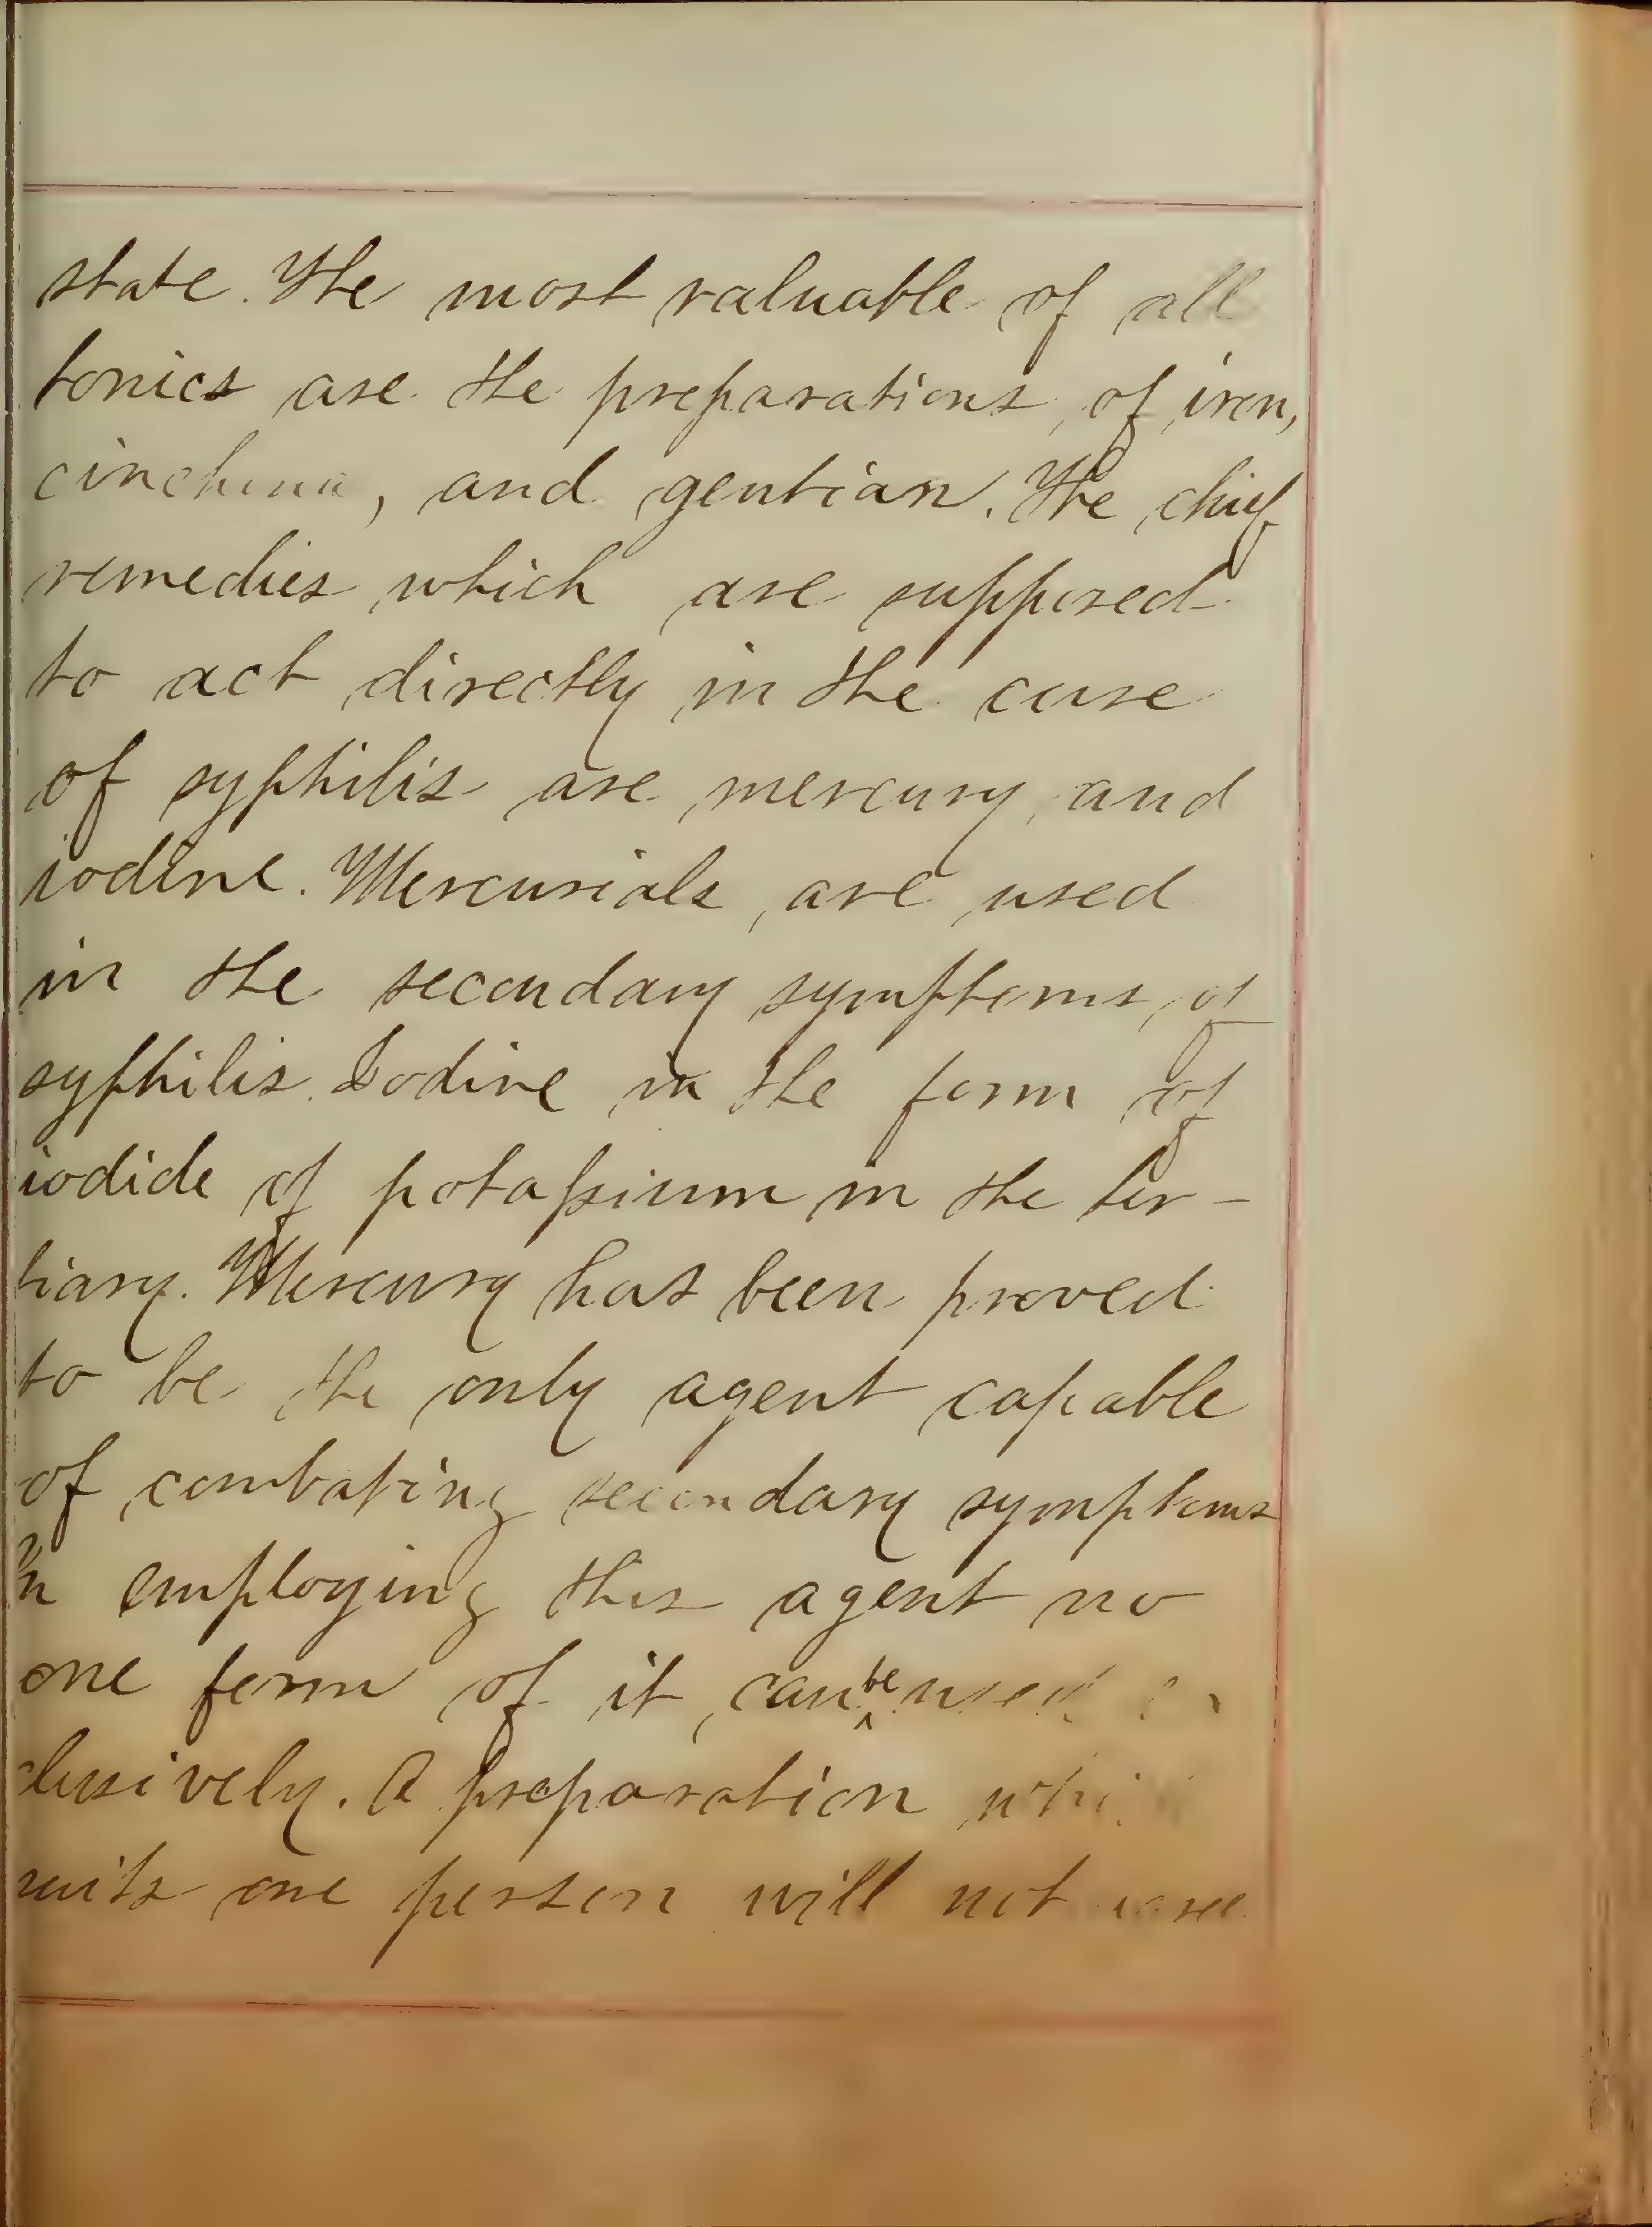 state. The most valuable of all
tonics are the preparations of iron,
cinchona, and gentian. The chief
remedies which are supposed
to act directly in the cure
of syphilis are mercury and
iodine. Mercurials are used
in the secondary symptoms of
syphilis. Iodine in the form of
iodide of potassium in the ter-
tiary. Mercury has been proved
to be the only agent capable
of combating secondary symptoms
In employing this agent no
one form of it can be used ex
clusively. A preparation which
suits one person will not